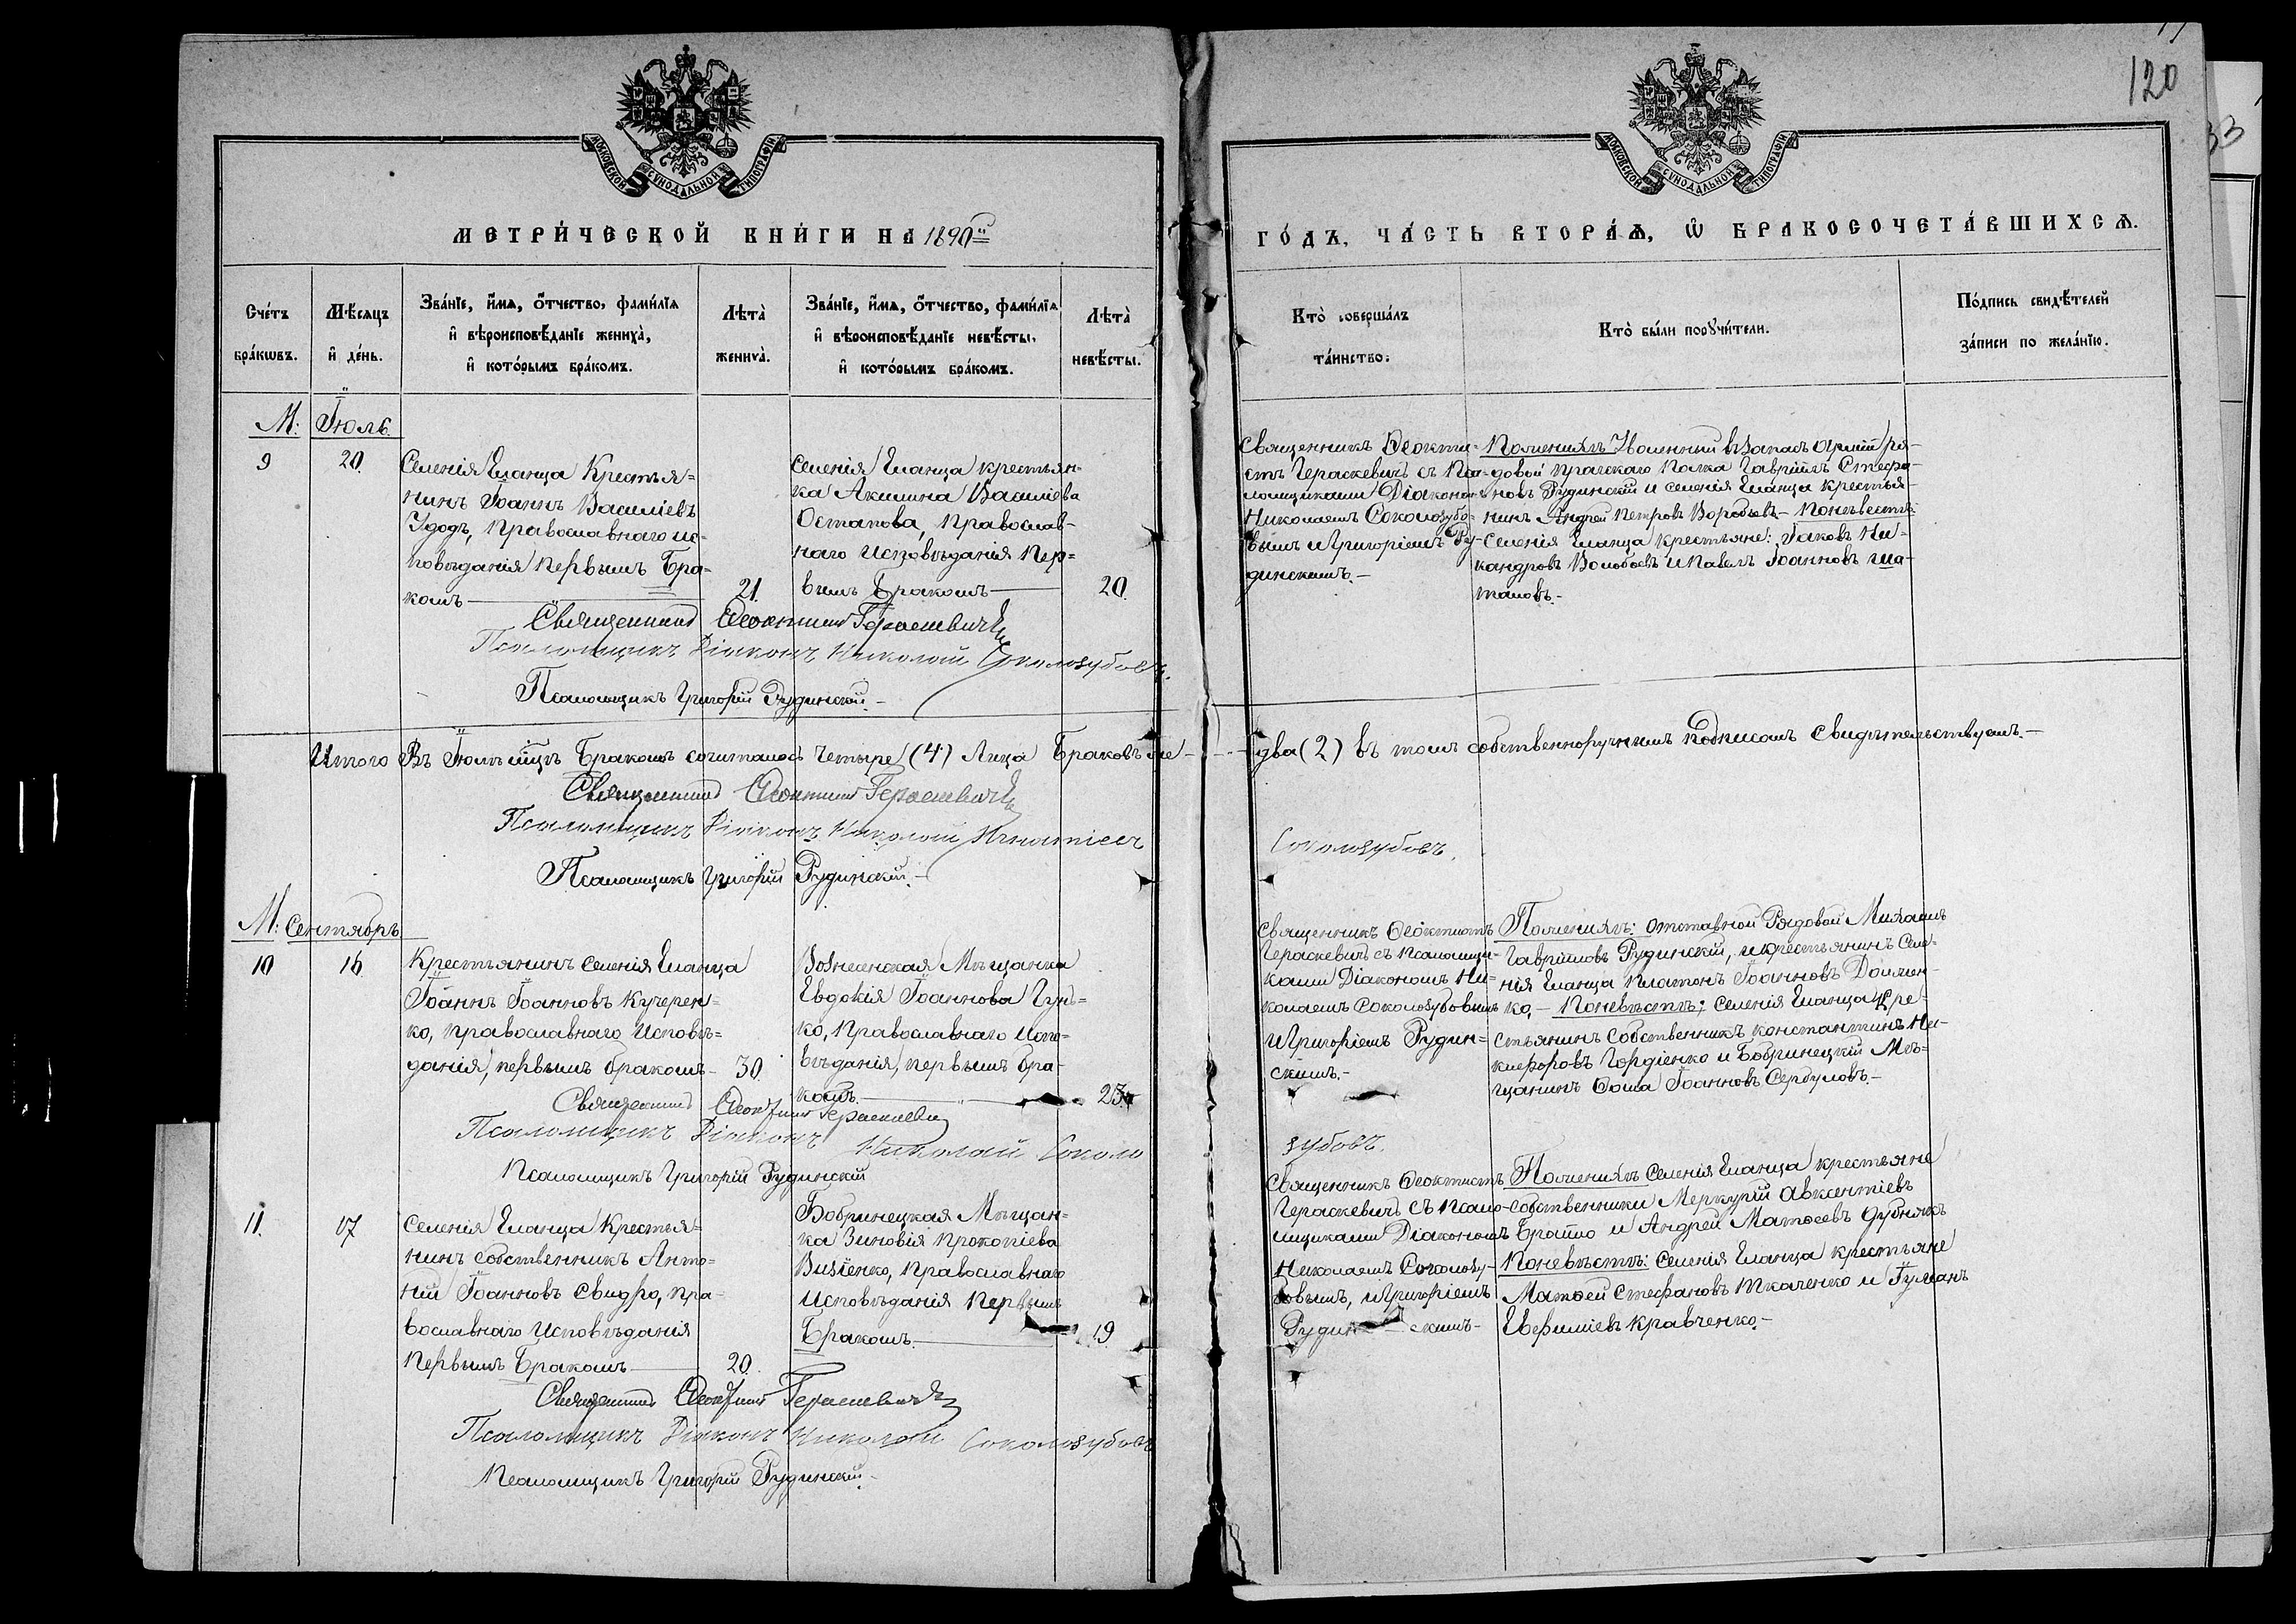 120
33
МОСКОВСКОЙ СѴНОДАЛЬНОЙ ТИПОГРАФІИ
МОСКОВСКОЙ СѴНОДАЛЬНОЙ ТИПОГРАФІИ
МЕТРИ́ЧЕСКОЙ КНИ́ГИ НА 1890й
ГО́ДЪ, ЧА́СТЬ ВТОРА́Ѧ, Ѽ БРАКОСОЧЕТА́ВШИХСѦ.
Сче́тъ бра́кѡвъ.
Мѣ́сяцъ и҆ де́нь.
Зва́нїе, и҆́мѧ, ѻ҆́тчество, фами́лїѧ
и҆ вѣроисповѣ́данїе жениха̀,
и҆ кото́рымъ бра́комъ.
Лѣта̀ жениха̀.
Зва́нїе, и҆́мѧ, ѻ҆́тчество, фами́лїѧ
и҆ вѣроисповѣ́данїе невѣ́сты,
и҆ кото́рымъ бра́комъ.
Лѣта̀ невѣ́сты.
Кто̀ соверша́лъ та́инство.
Кто̀ бы́ли порꙋчи́тели.
По́дпись свидѣ́телей
за́писи по жела́нїю.
М: Іюль.
9
20.
Селенія Еланца Крестья=
нинъ Іоаннъ Василіевъ
Удодъ, православнаго ис-
повѣданія первымъ Бра-
комъ
21.
Селенія Еланца крестьян-
ка Акилина Василіева
Остапова, православ-
наго исповѣданія пер=
вымъ Бракомъ
20.
Священникъ Ѳеокти-
стъ Гераскевичъ съ Пса-
ломщиками Діакономъ
Николаемъ Соколозубо-
вымъ и Григоріемъ Ру-
динскимъ.-
По женихѣ Уволенный въ Запасъ арміи ря-
довой Пражскаго полка Гавріилъ Стефа-
новъ Рудинскій и селенія Еланца крестья-
нинъ Андрей Петровъ Воробьевъ - по невѣстѣ:
Селенія Еланца крестьяне: Іаковъ Ни-
кандровъ Волобоевъ и Павелъ Іоанновъ Ша-
таловъ.-
Священникъ Ѳеоктистъ Гераскевичъ
Псаломщикъ Діаконъ Николай Соколозубовъ.
Псаломщикъ Григорій Рудинскій.-
Итого Въ Іюлѣ мцѣ Бракомъ сочиталось Четыре (4) Лица Браковъ же - два (2) въ томъ собственноручнымъ подписомъ Свидѣтельствуемъ.-
Священникъ Ѳеоктистъ Гераскевичъ
Псаломщикъ Діаконъ Николай Игнатіевъ Соколозубовъ.
Псаломщикъ Григорій Рудинскій.-
М: Сентябрь
10
16
Крестьянинъ селенія Еланца
Іоаннъ Іоанновъ Кучерен=
ко, православнаго Исповѣ=
данія, первымъ бракомъ -
30.
Вознесенская Мѣщанка
Евдокія Іоаннова Гунь=
ко, Православнаго Испо-
вѣданія, первымъ бра-
комъ.
23.
Священникъ Ѳеоктистъ
Гераскевичъ съ псаломщи-
ками Діакономъ Ни-
колаемъ Соколозубовымъ
и Григоріемъ Рудин=
скимъ.-
По женихѣ: отставной Рядовой Михаилъ
Гавріиловъ Рудинскій, и крестьянинъ селе-
нія Еланца Платонъ Іоанновъ Должен-
ко. - По невѣстѣ: селенія Еланца Кре-
стьянинъ собственникъ Константинъ Ни-
кифоровъ Гордіенко и Бобринецкій Мѣ=
щанинъ Ѳома Іоанновъ Сербуловъ.-
Священникъ Ѳеоктистъ Гераскевичъ
Псаломщикъ Діаконъ Николай Соколозубовъ.
Псаломщикъ Григорій Рудинскій
11.
17
Селенія Еланца Крестья=
нинъ собственникъ Анто=
ній Іоанновъ Свидро, пра-
вославнаго Исповѣданія
первымъ Бракомъ
20.
Бобринецкая Мѣщан=
ка Зиновія Прокопіева
Визіенко, Православнаго
Исповѣданія первымъ
Бракомъ.
19.
Священникъ Ѳеоктистъ
Гераскевичъ съ псало-
мщиками Діакономъ
Николаемъ Соколозу-
бовымъ, и Григоріемъ
Рудинскимъ-
По женихѣ Селенія Еланца крестьяне
собственники Меркурій Авксентіевъ
и Андрей Матѳеевъ Дубнякъ
По невѣстѣ: Селенія Еланца крестьяне
Матѳей Стефановъ Ткаченко и Іуліанъ
Евфиміевъ Кравченко.-
Священникъ Ѳеоктистъ Гераскевичъ
Псаломщикъ Діаконъ Николай Соколозубовъ
Псаломщикъ Григорій Рудинскій.-